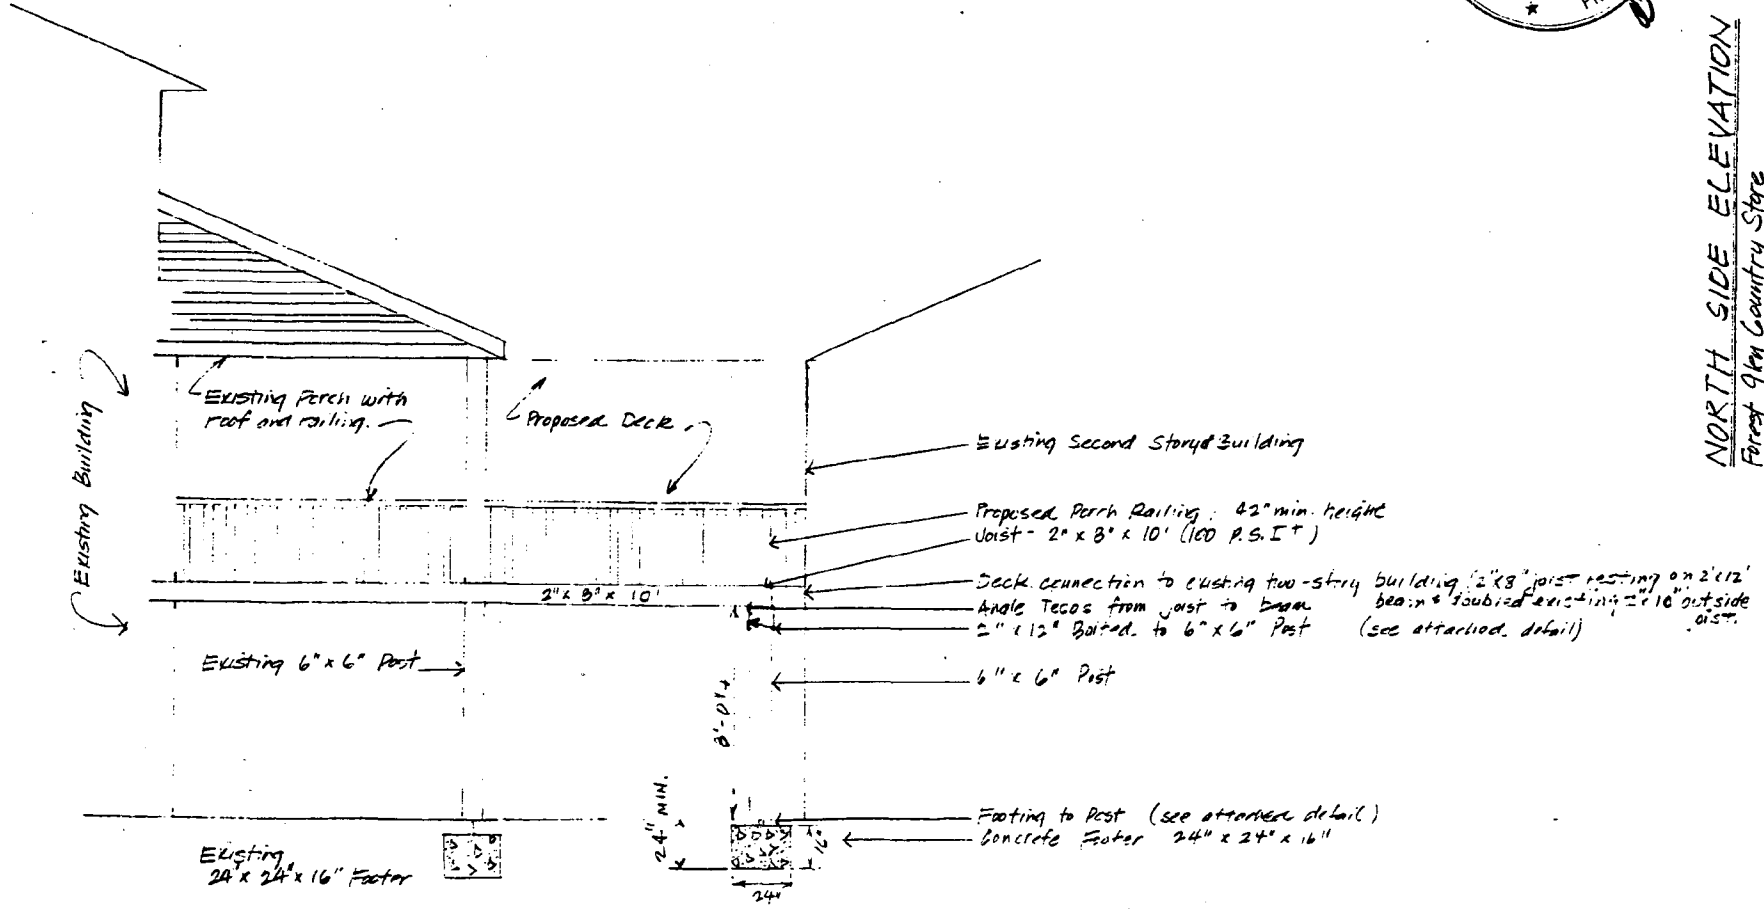 NORTH SIDE ELEVATION
Country Store
Existing Building
Existing Porch with
roof and railing.
Proposed Deck
Existing Second Story Building
Proposed Porch Railing: 42" min. height
Joist - 2" x 8" x 10' (100 P.S.I +)
Deck connection to existing two-story building (2"x8" joist resting on 2"x12"
beam & doubled existing 2"x10" outside
joist.
2" x 8" x 10'
Angle Tecos from joist to beam
2" x 12" Bolted to 6" x 6" Post (see attached detail)
Existing 6" x 6" Post
6" x 6" Post
8'-0"+
24" MIN.
Footing to Post (see attached detail)
Concrete Footer 24" x 24" x 16"
16"
24"
Existing
24" x 24" x 16" Footer